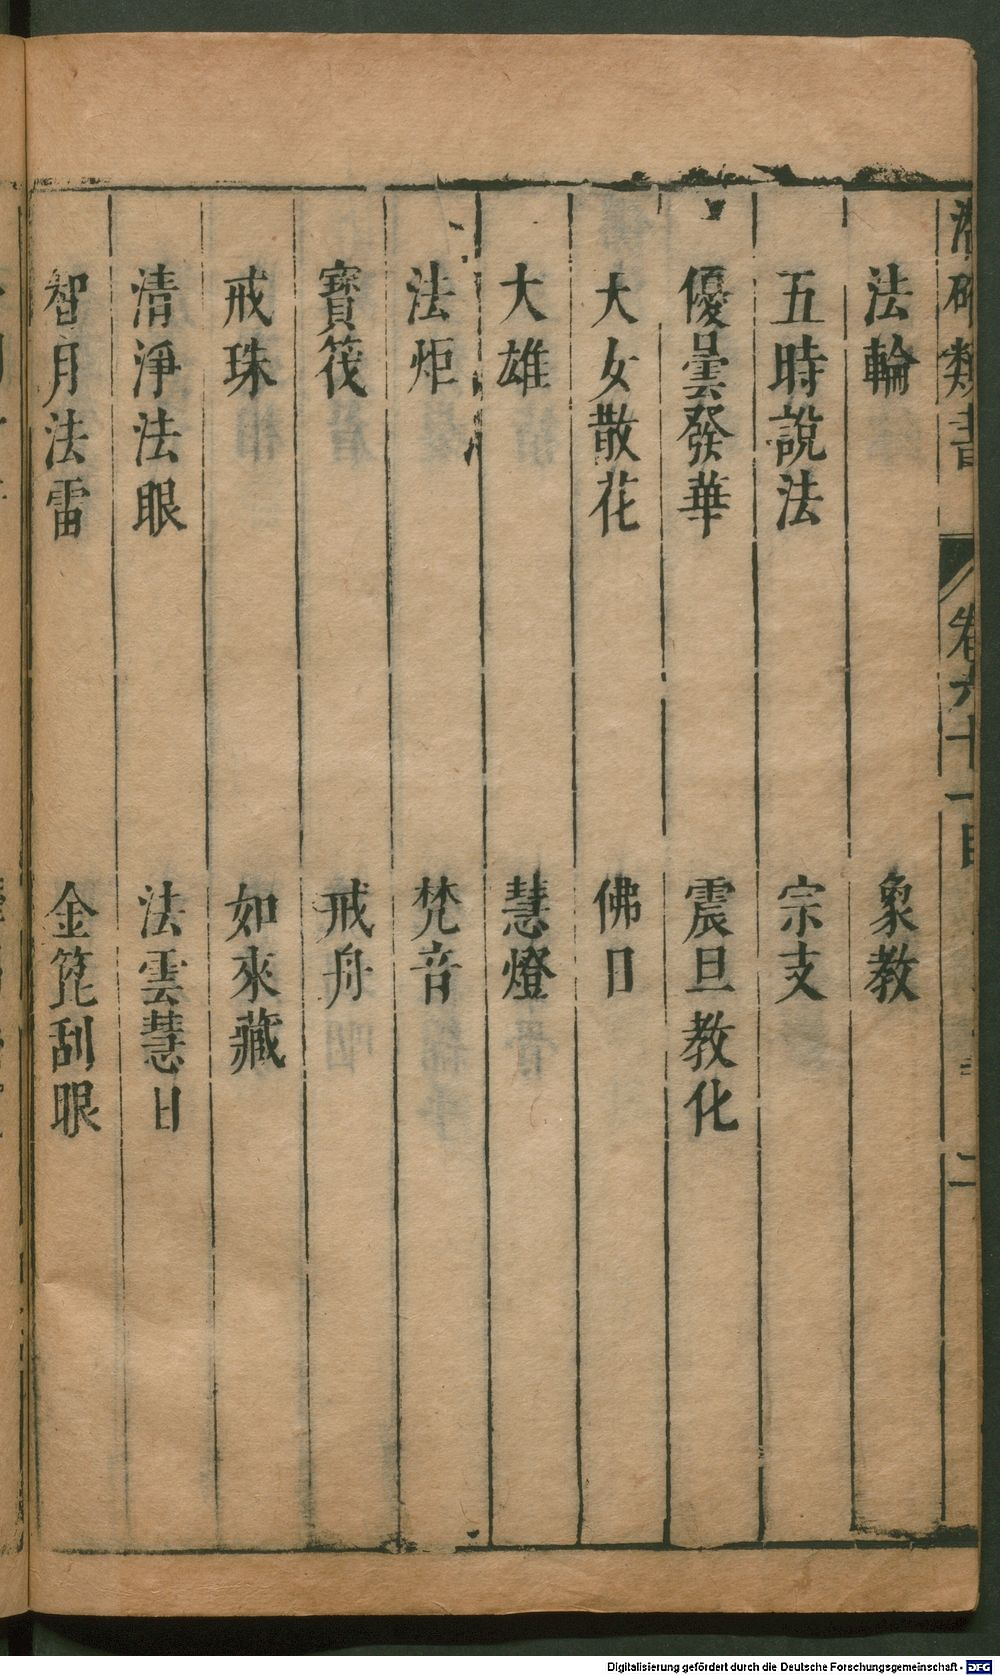 潛確類書
卷六十一目
二
法輪
象教
五時說法
宗支
優曇發華
震旦教化
天女散花
佛日
大雄
慧燈
法炬
梵音
寶筏
戒舟
戒珠
如來藏
清淨法眼
法雲慧日
智月法雷
金篦刮眼
Digitalisierung gefördert durch die Deutsche Forschungsgemeinschaft - DFG